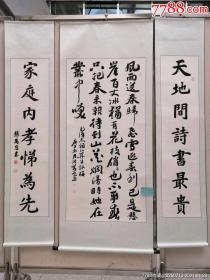 7788.com
天地間詩書最貴
風雨送春歸飛雪迎春到已是懸
崖百丈冰猶有花枝俏俏也不爭春
只把春來報待到山花爛漫時她在
叢中笑
家庭内孝悌為先